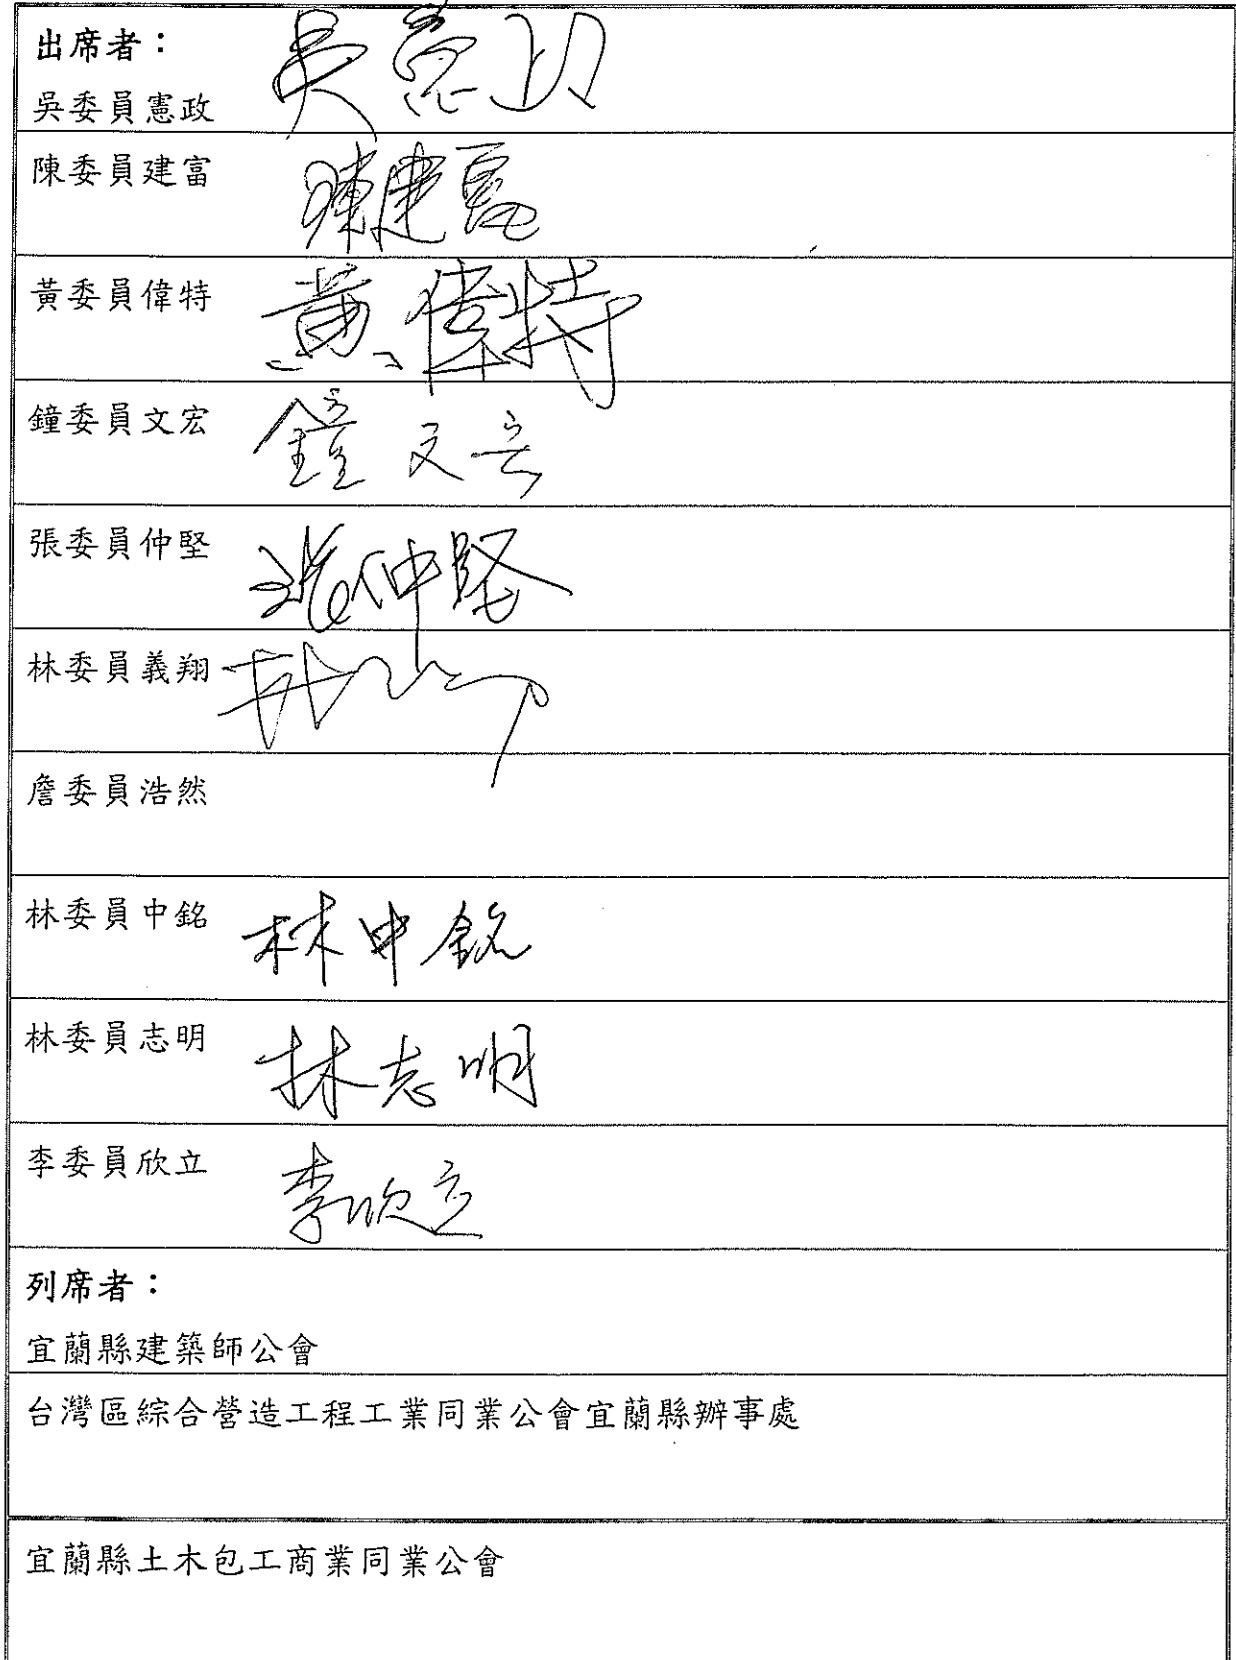 出席者：
吳委員憲政
吳憲政
陳委員建富
陳建富
黃委員偉特
黃偉特
鐘委員文宏
鐘文宏
張委員仲堅
張仲堅
林委員義翔
詹委員浩然
林委員中銘
林中銘
林委員志明
林志明
李委員欣立
李欣立
列席者：
宜蘭縣建築師公會
台灣區綜合營造工程工業同業公會宜蘭縣辦事處
宜蘭縣土木包工商業同業公會